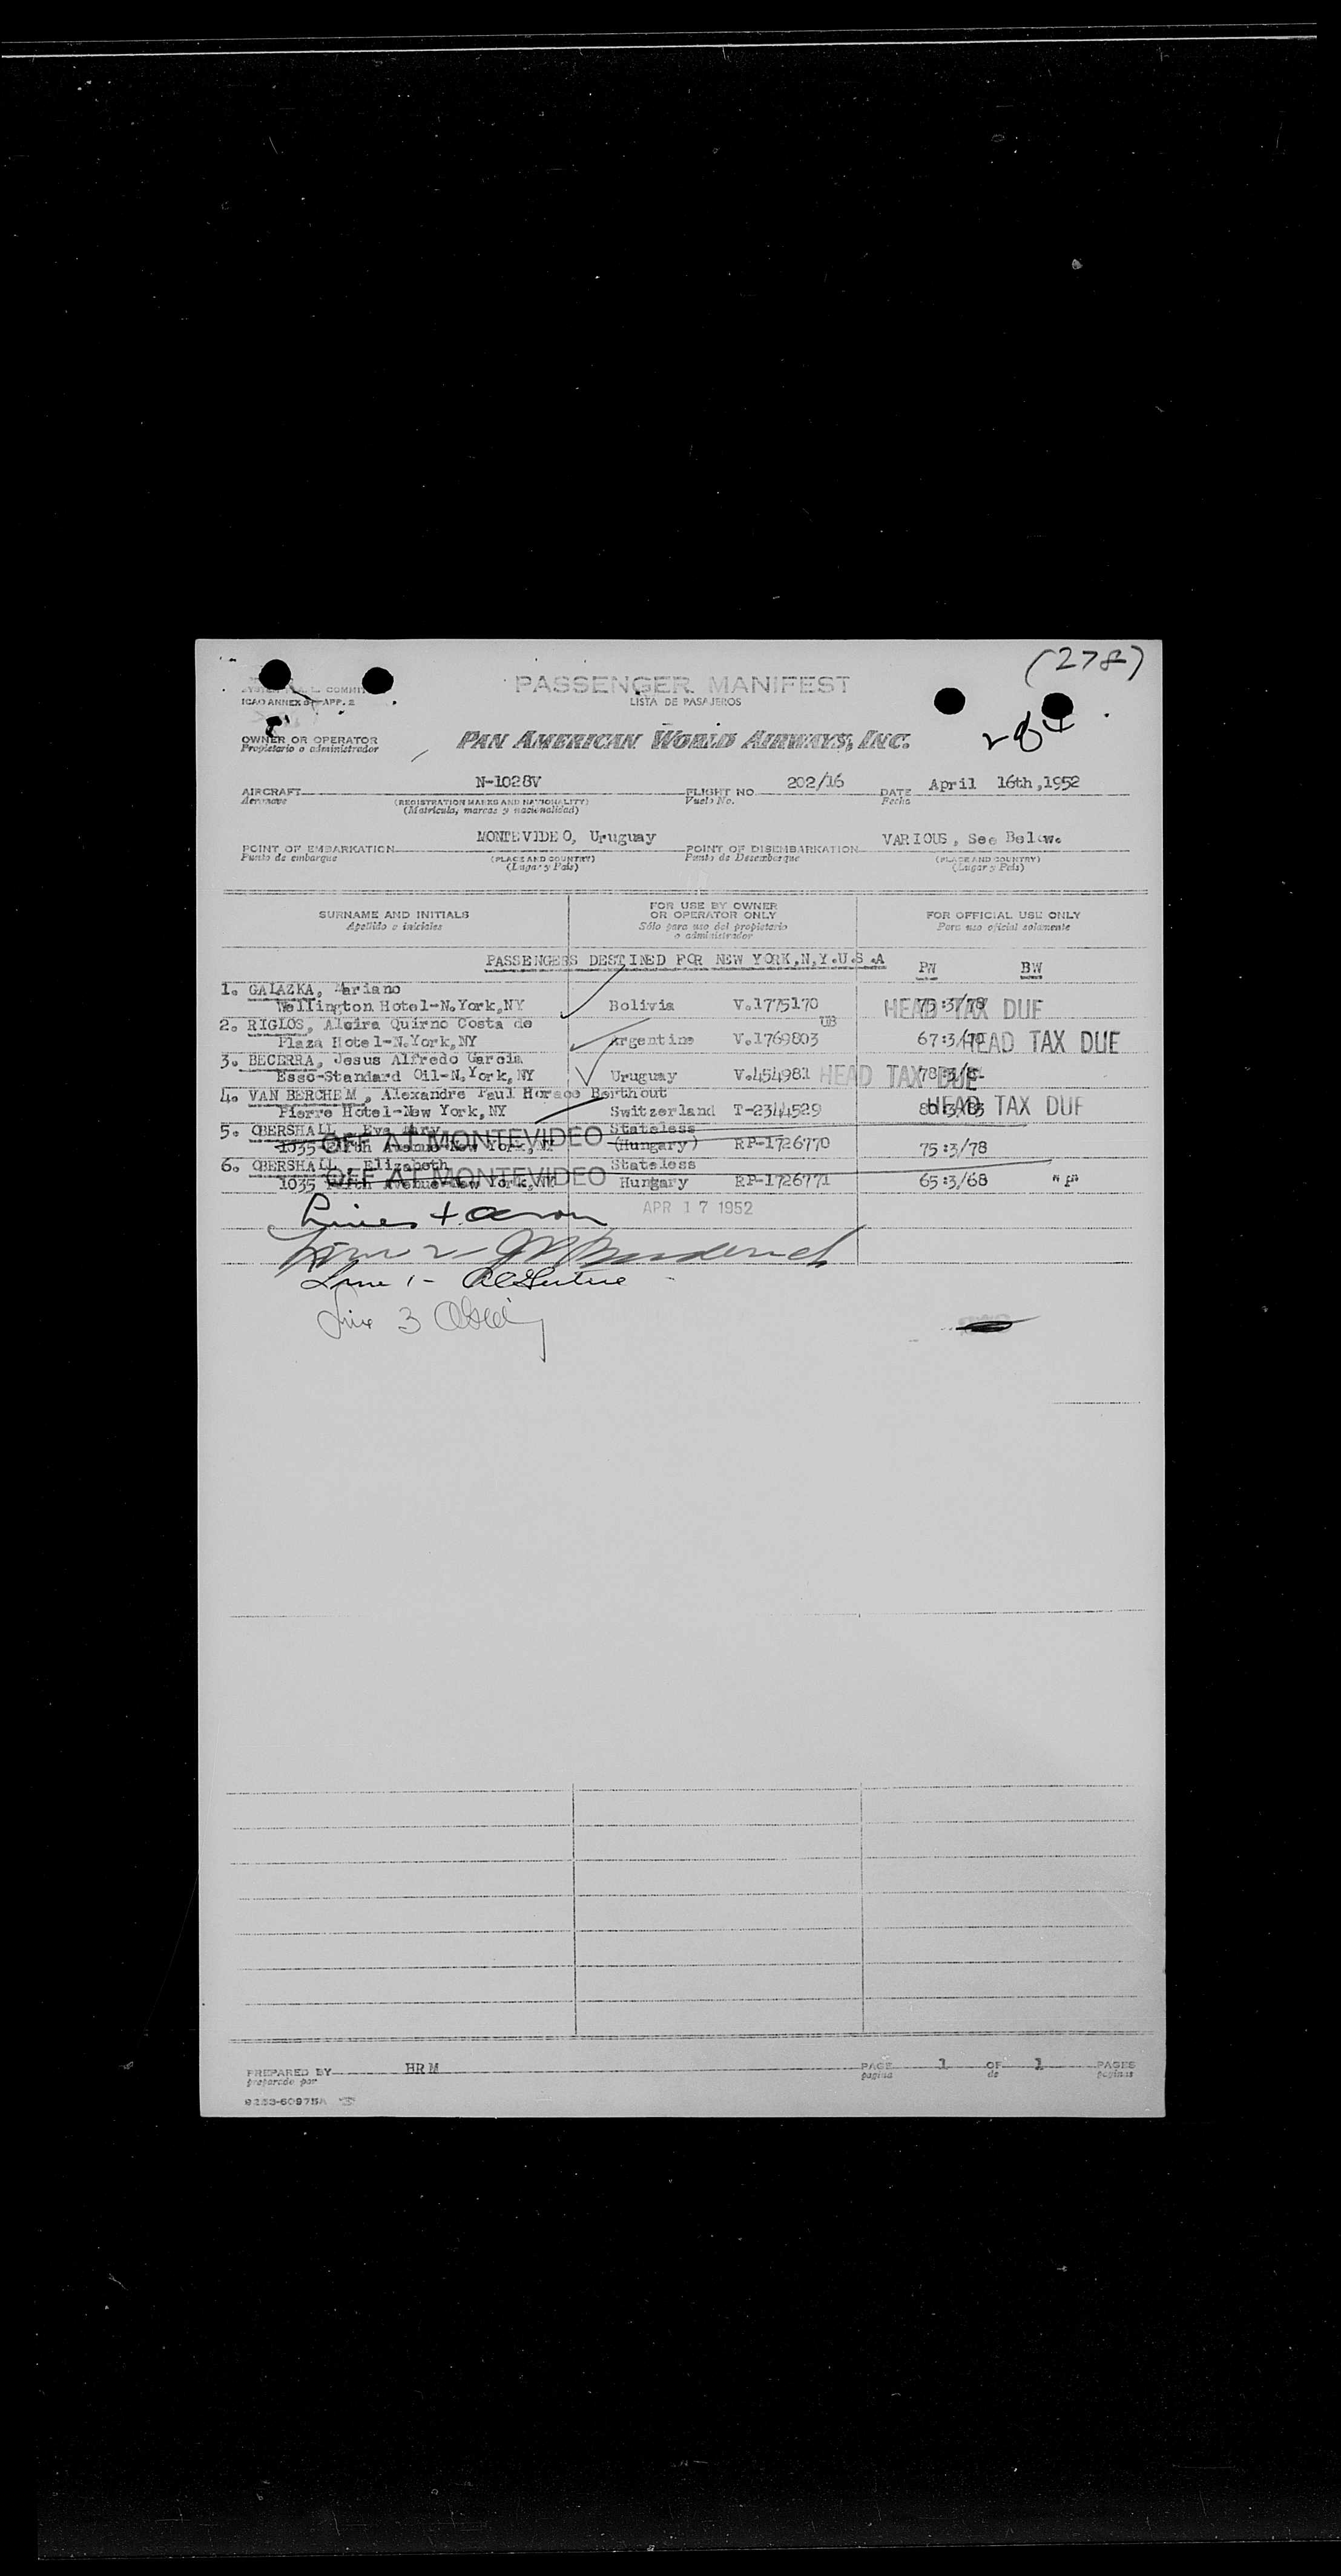 (278)
PASSENGER MANIFEST
LISTA DE PASAJEROS
ICAO ANNEX 9 APP. 2
284
OWNER OR OPERATOR
Propietario o administrador
PAN AMERICAN WORLD AIRWAYS, INC.
AIRCRAFT N-1028V FLIGHT NO. 202/16 DATE April 16th,1952
Aeronave (REGISTRATION MARKS AND NATIONALITY) Vuelo No. Fecha
(Matricula, marcas y nacionalidad)
POINT OF EMBARKATION MONTEVIDEO, Uruguay POINT OF DISEMBARKATION VARIOUS, See Below.
Punto de embarque (PLACE AND COUNTRY) Punto de Desembarque (PLACE AND COUNTRY)
(Lugar y Pais) (Lugar y Pais)
SURNAME AND INITIALS FOR USE BY OWNER OR OPERATOR ONLY FOR OFFICIAL USE ONLY
Apellido e iniciales Sólo para uso del propietario o administrador Para uso oficial solamente
PASSENGERS DESTINED FOR NEW YORK,N.Y.U.S.A PW BW
1. GALAZKA, Mariano
Wellington Hotel-N.York,NY Bolivia V.1775170 75:3/78 HEAD TAX DUE
2. RIGLOS, Alcira Quirno Costa de UB
Plaza Hotel-N.York,NY Argentine V.1769803 67:3/70 HEAD TAX DUE
3. BECERRA, Jesus Alfredo Garcia
Esso-Standard Oil-N.York,NY Uruguay V.454981 HEAD TAX DUE
4. VAN BERCHEM, Alexandre Paul Horace Berthout
Pierre Hotel-New York,NY Switzerland T-2344529 80:3/83 HEAD TAX DUE
5. OBERSHALL, Eva Mary Stateless
1035 Fifth Avenue-New York,NY OFF AT MONTEVIDEO (Hungary) RP-1726770 75:3/78
6. OBERSHALL, Elizabeth Stateless
1035 Fifth Avenue-New York,NY OFF AT MONTEVIDEO Hungary RP-1726771 65:3/68
APR 17 1952
Line 2
Line 1 -
Line 3
PREPARED BY HRM PAGE 1 OF 1 PAGES
preparado por pagina de paginas
9253-60975A